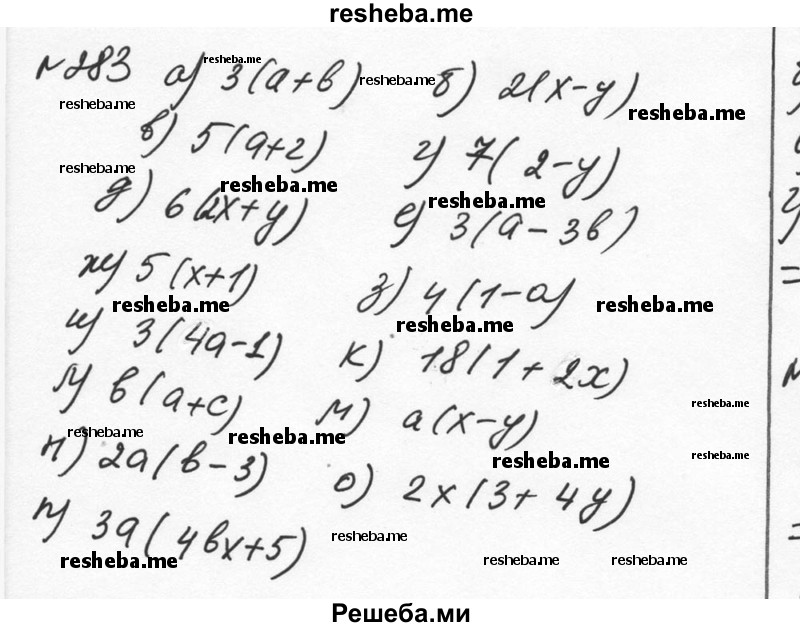 resheba.me
№283 а) 3(a+b) resheba.me resheba.me б) 2(x-y)
resheba.me resheba.me
в) 5(a+2) г) 7(2-y)
resheba.me resheba.me
д) 6(2x+y) е) 3(a-3b)
resheba.me
ж) 5(x+1) з) 4(1-a)
resheba.me resheba.me resheba.me
и) 3(4a-1) к) 18(1+2x)
л) b(a+c) м) a(x-y)
resheba.me
resheba.me resheba.me
н) 2a(b-3) resheba.me resheba.me
о) 2x(3+4y)
п) 3a(4bx+5) resheba.me
resheba.me resheba.me resheba.me
Решеба.ми